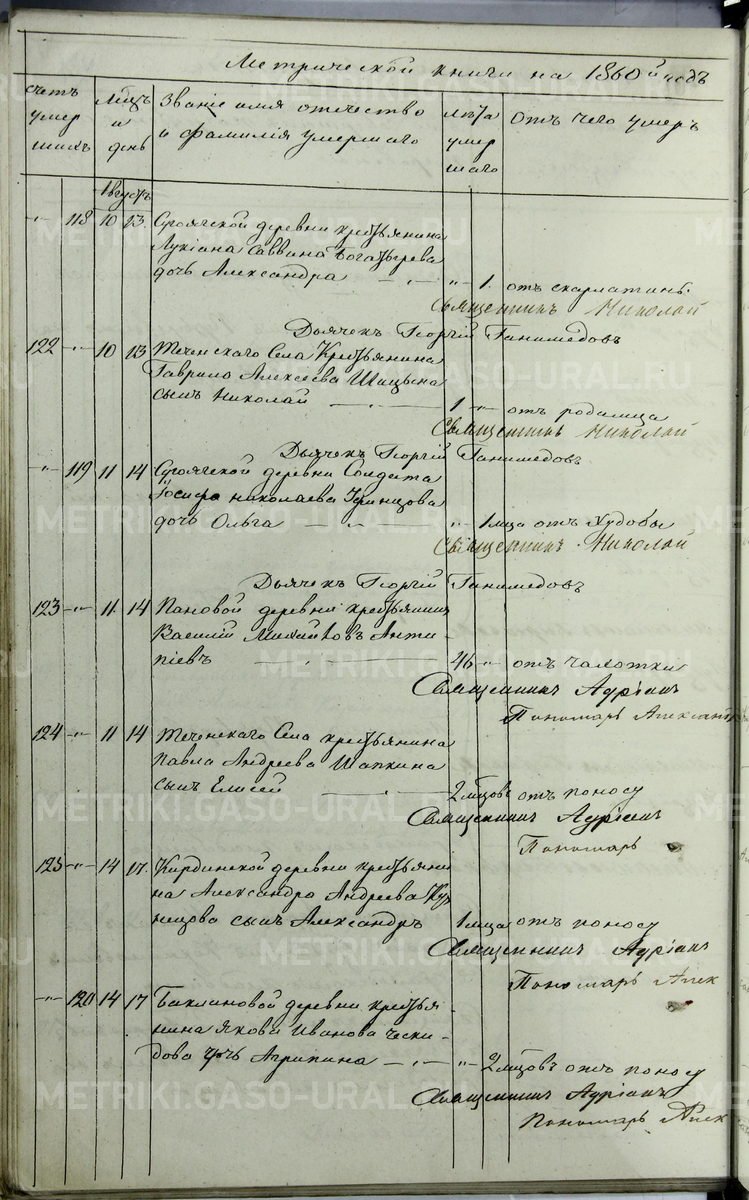 Метрической книги на 1860й годъ
счетъ умер шихъ
Мцъ и день
Званіе имя отечество и фамилія умершаго
лѣта умер шаго
Отъ чего умеръ
Августъ
-"- 118 10 13. Сугоякской деревни крестьянина
Лукіана Саввина Богатырева
дочь Александра - " - " 1. отъ скарлатины.
Священникъ Николай
Дьячекъ Георгій Ганимедовъ
122 -"- 10 13 Теченскаго Села Крестьянина
Гаврила Алексеева Шицына
сынъ Николай - " - 1 " отъ родимца
Священникъ Николай
Дьячекъ Георгій Ганимедовъ
-"- 119 11 14 Сугоякской деревни Солдата
Іосифа николаева
дочь Ольга - " - " 1 мца отъ Худобы
Священникъ Николай
Дьячекъ Георгій Ганимедовъ
123 -"- 11. 14 Пановой деревни крестьянинъ
Василій Михайловъ Анти-
піевъ - " - 46 " отъ чахотки
Священникъ Адріанъ
Пономарь Александ
124 -"- 11 14 Теченскаго Села крестьянина
Павла Андреева Шапкина
сынъ Елисей - " - 2 мцовъ отъ поносу
Священникъ Адріанъ
Пономарь
125 -"- 14 17. Кирдинской деревни крестьяни
на Александра Андреева Куз
нецова сынъ Александръ 1 мца отъ поносу
Священникъ Адріанъ
Пономарь Алек
-"- 120 14 17 Баклановой деревни крестья
нина Якова Иванова Чески-
дова дочь Агрипина - " - " 2 мцовъ отъ поносу
Священникъ Адріанъ
Пономарь Алек
METRIKI.GASO-URAL.RU